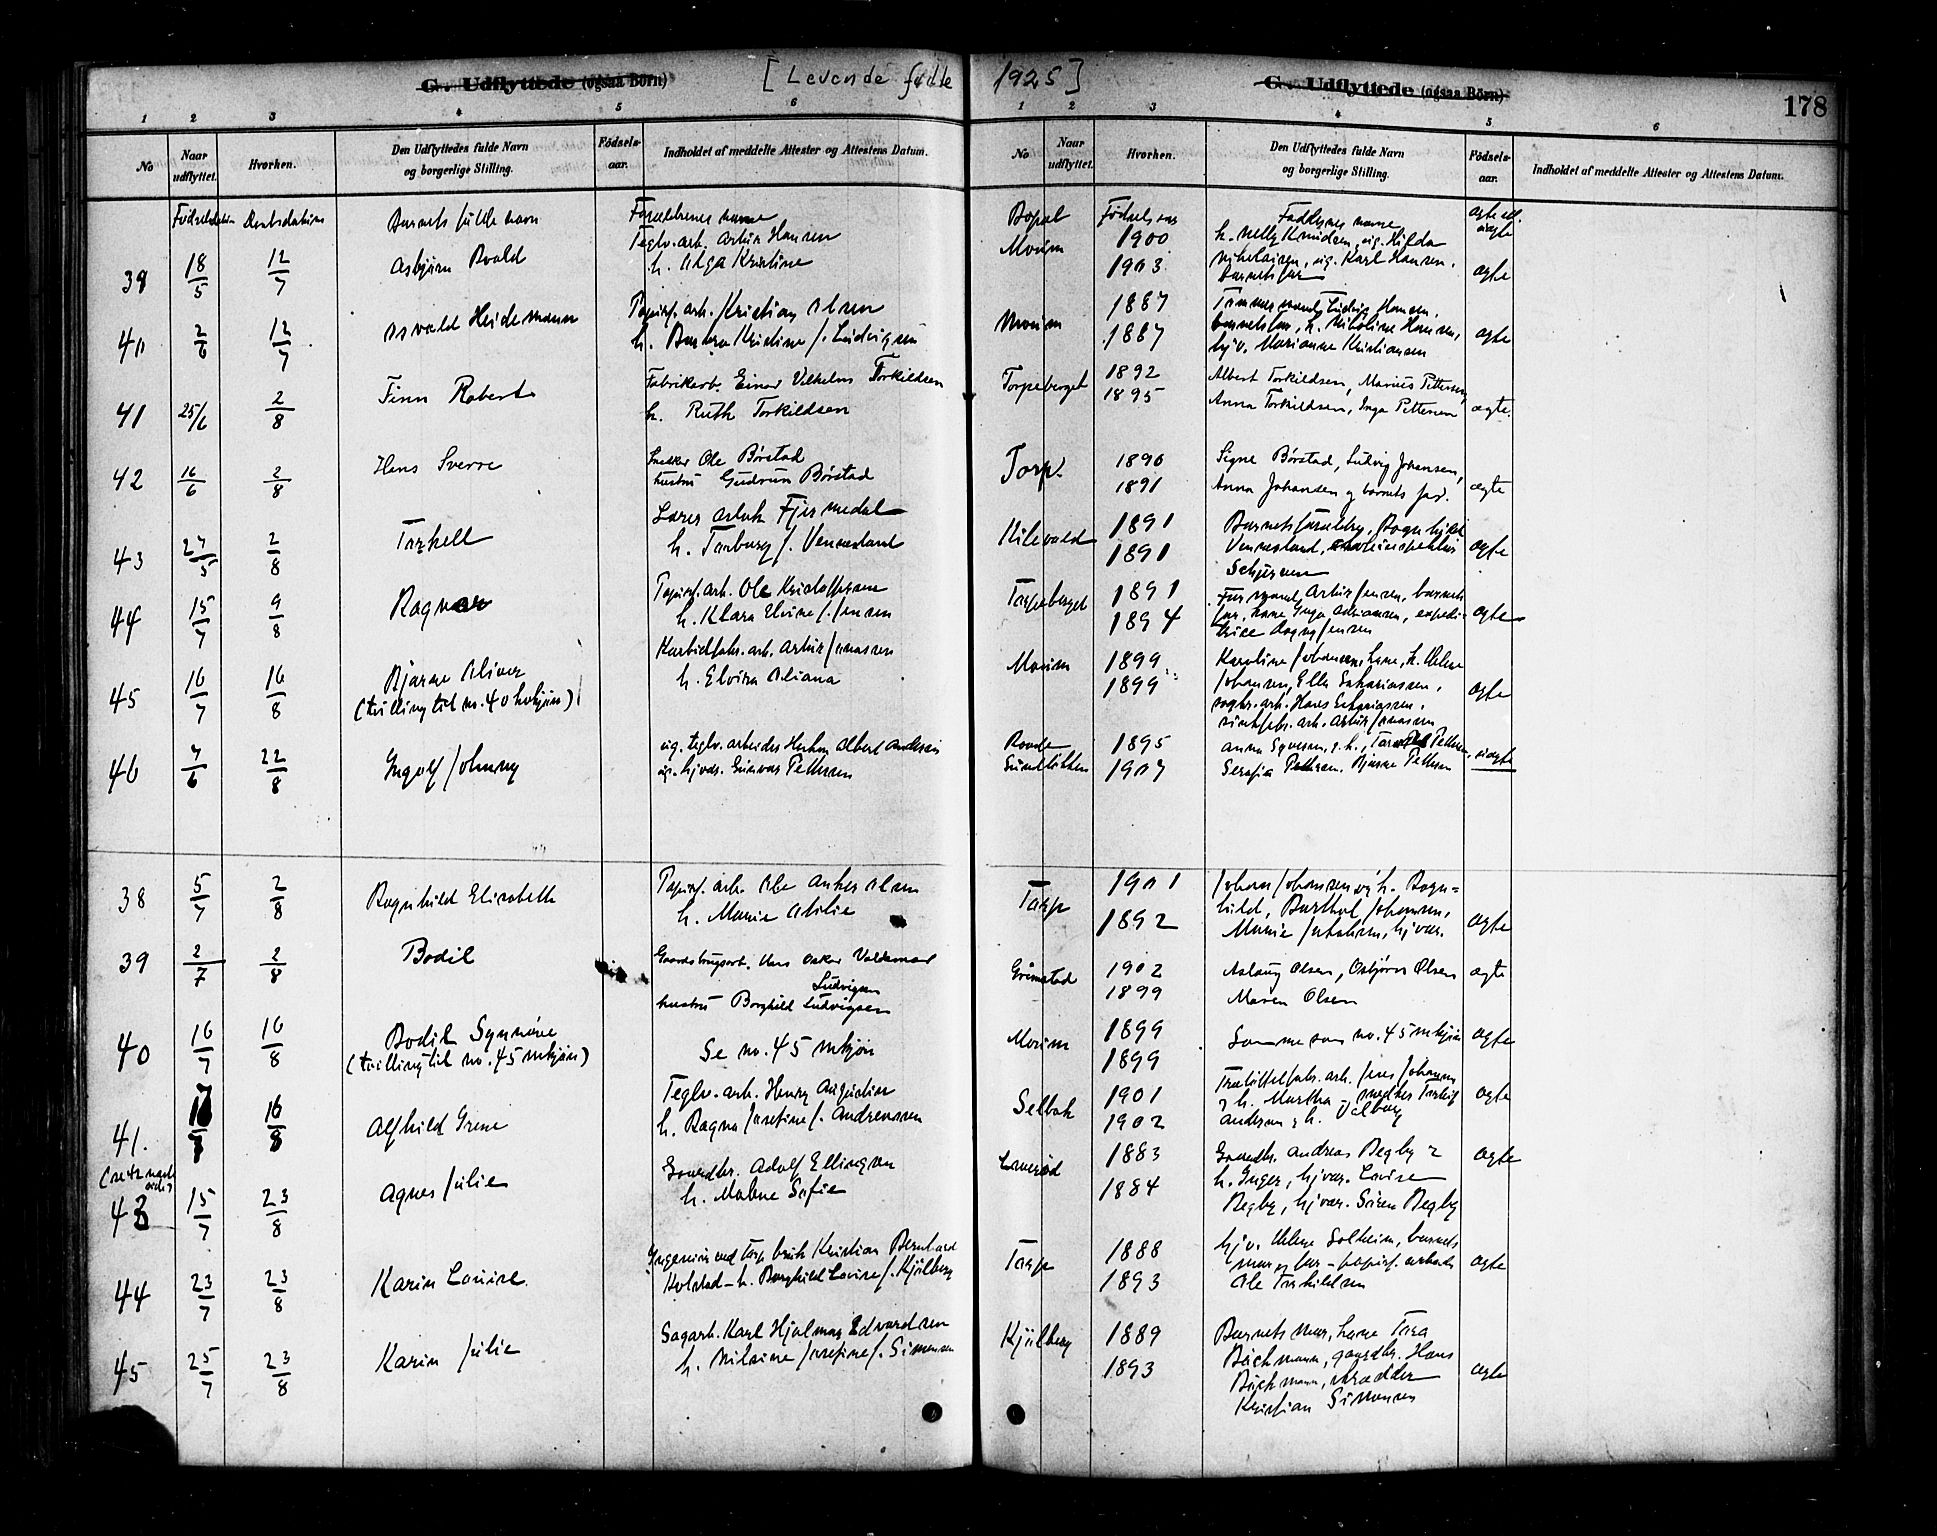 G. Udflyttede (ogsaa Börn) [Levende fødte
1 2 3 4 5 6
No Naar udflyttet. Hvorhen. Den Udflyttedes fulde Navn og borgerlige Stilling. Fødselsaar. Indholdet af meddelte Attester og Attestens Datum.
Barnets fulde navn Forældrenes navne
39 18/5 12/7 Asbjørn Roald Teglv. arb. Artur Hansen
h. Olga Kristine
40 2/6 12/7 Osvald Heidemann Papirf. arb. Kristian Olsen
h. Barbra Kristine f. Ludvigsen
41 25/6 2/8 Finn Robert Fabrikarb. Einar Vilhelm Torkildsen
h. Ruth Torkildsen
42 16/6 2/8 Hans Sverre Snekker Ole Børstad
hustru Gudrun Børstad
43 27/5 2/8 Torkell Lærer Aslak Fjermedal
h. Torborg f. Vennesland
44 15/7 9/8 Ragnar Papirf. arb. Ole Kristoffersen
h. Klara Elvine f. Jensen
45 16/7 16/8 Bjarne Oliver Karbidfabr. arb. Artur Jonassen
(tvilling til no. 40 kvkjøn) h. Elvira Oliana
46 7/6 22/8 Ingolf Johnny ug. teglv. arbeider Herbert Albert Andersen
ug. hjvær. Gunvor Pettersen
38 5/7 2/8 Ragnhild Elisabeth Papirf. arb. Ole Anker Olsen
h. Marie Otilie
39 2/7 2/8 Bodil Gaardsbrugsarb. Hans Oskar Valdemar
Ludvigsen
hustru Borghild Ludvigsen
40 16/7 16/8 Bodil Synnøve
(tvilling til no. 45 mkjøn) Se no. 45 mkjøn
41. 16/8 Alfhild Irene Teglv. arb. Henry Augustin
h. Ragna Josefine f. Andreassen
43 15/7 23/8 Agnes Julie Gaardbr. Adolf Ellingsen
h. Malene Sofie
44 23/7 23/8 Karin Louise. Ingeniør ved Torp bruk Kristian Bernhard
Holstad – h. Borghild Lovise f. Kjølberg
45 25/7 23/8 Karin Julie Sagarb. Karl Hjalmar Edvardsen
h. Nilsine Josefine f. Simensen
1925] G. Udflyttede (ogsaa Börn) 178
1 2 3 4 5 6
No Naar udflyttet. Hvorhen. Den Udflyttedes fulde Navn og borgerlige Stilling. Fødselsaar. Indholdet af meddelte Attester og Attestens Datum.
Bopæl Fødselsaar Faddernes navne ægte ell. uægte
Moum 1900 h. Nelly Knudsen, ug. Hilda
1903 Nikolaisen, ug. Karl Hansen,
barnets far ægte
Moum 1887 Tømmermand Ludvig Hansen,
1887 barnets far, h. Nikoline Hansen, ægte
hjv. Marianne Kristiansen
Torpeberget 1892 Albert Torkildsen, Marius Pettersen,
1895 Anna Torkildsen, Inga Pettersen ægte.
Torp. 1890 Signe Børstad, Ludvig Johansen,
1891 Anna Johansen og barnets far. ægte
Kilevold 1891 Barnets forældre, Ragnhild
1891 Vennesland, skoleinspektør ægte
Torpeberget 1891 Formand Artur Jensen, barnets
1894 far, kone Inga Adriansen, expedi- ægte
trice Dagny Jensen
Moum 1899 Karoline Johansen, kone, h. Helene
1899 Johansen, Ella Sakariassen, ægte
Hans Sakariassen,
arb. Artur Jonassen
Roode 1895 Anna Syversen, g. h., Pettersen, uægte
1907 Serafia Pettersen, Bjarne Pettersen
Torp 1901 Johan Johansen og h. Ragn=
1892 hild, Barthol Johansen, ægte
Marie Johansen, hjvær.
Grimstad 1902 Aslaug Olsen, Osbjørn Olsen ægte
1899 Maren Olsen
Moum 1899 Samme som no. 45 mkjøn ægte
1899
Selbak 1901 Træluffefabr. arb. Jens Johansen
1902 & h. Martha – snedker Torleif ægte
Andersen & h. Valborg
1883 Gaardbr. Andreas Begby & ægte
1884 h. Inger, hjvær. Lovise
Begby, hjvær. Søren Begby
Torp 1888 hjv. Helene Solheim, barnets
1893 mor og far – papirf. arbeider ægte
Ole Torkildsen
Kjølberg 1889 Barnets mor, kone Tora
1893 Bückmann, gaardbr. Hans
Bückmann, skrædder ægte
Kristian Simensen